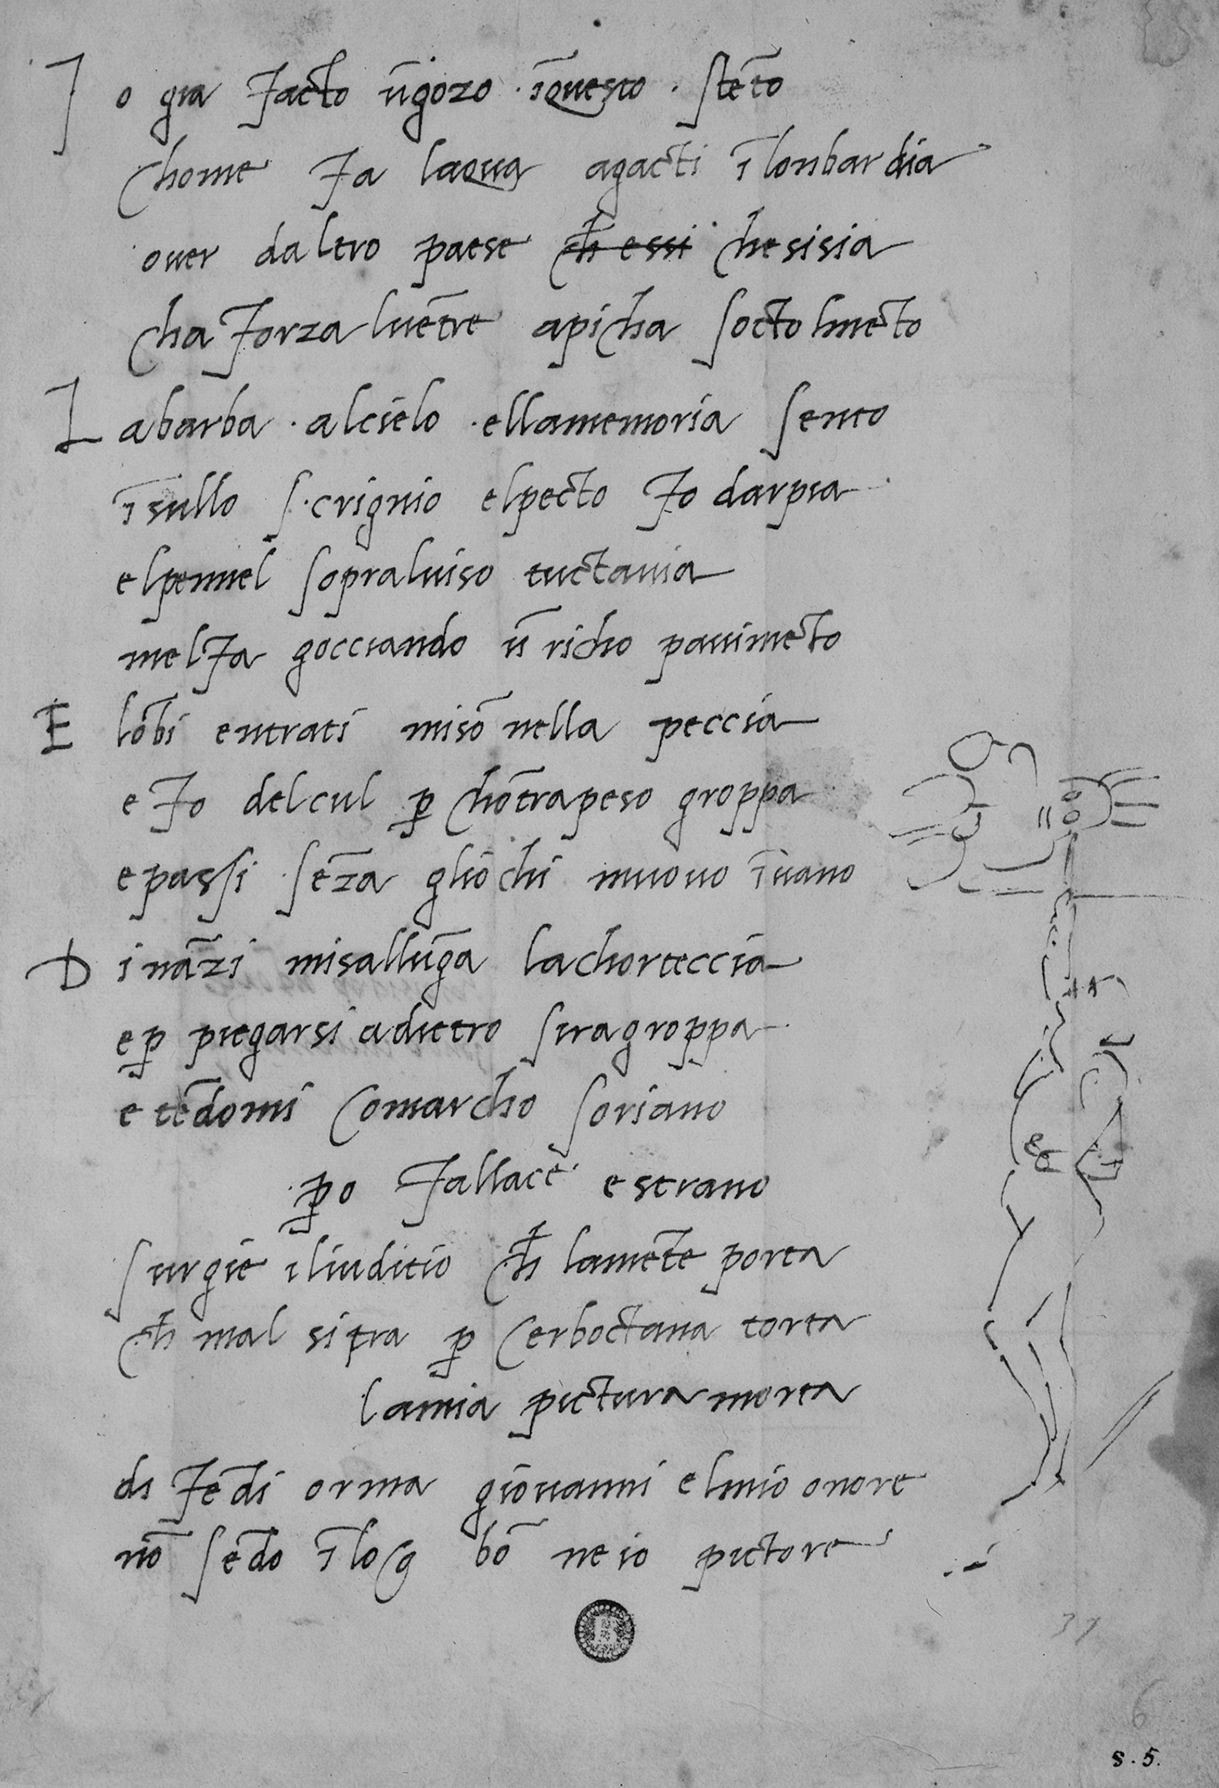 Io gia facto ūgozo · īquesto · stēto
chome fa laqua agacti ī lonbardia
over daltro paese ch̄ essi chesisia
cha forza lvētre apicha socto lmēto
La barba · alcielo · ellamemoria sento
īsullo scrignio elpecto fo darpia
elpennel sopralviso tuctavia
melfa gocciando ū richo pavimēto
E lōbi entrati misō nella peccia
e fo delcul p̱ chōtrapeso groppa
e passi sēza gliochi muovo īvano
Dināzi misallūga lachorteccia
e p̱ piegarsi adietro siragroppa
e tēdomi comarcho soriano
p̱o fallace e strano
surgie iliuditio ch̄ lamēte porta
ch̄ mal sitra p̱ cerboctana torta
lamia pictura morta
di fēdi orma giovanni elmio onore
nō sēdo ī log bō ne io pictore
37
6
s. 5.